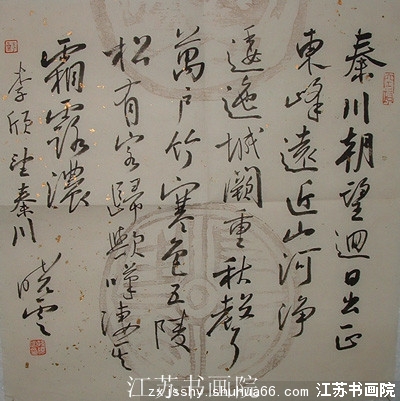 秦川朝望迴日出正
東峰遠近山河浄
逶迤城闕重秋聲
萬户竹寒色五陵
松有客歸歟嘆凄其
霜露濃
李颀望秦川 晓雲
江苏书画院
江苏书画院